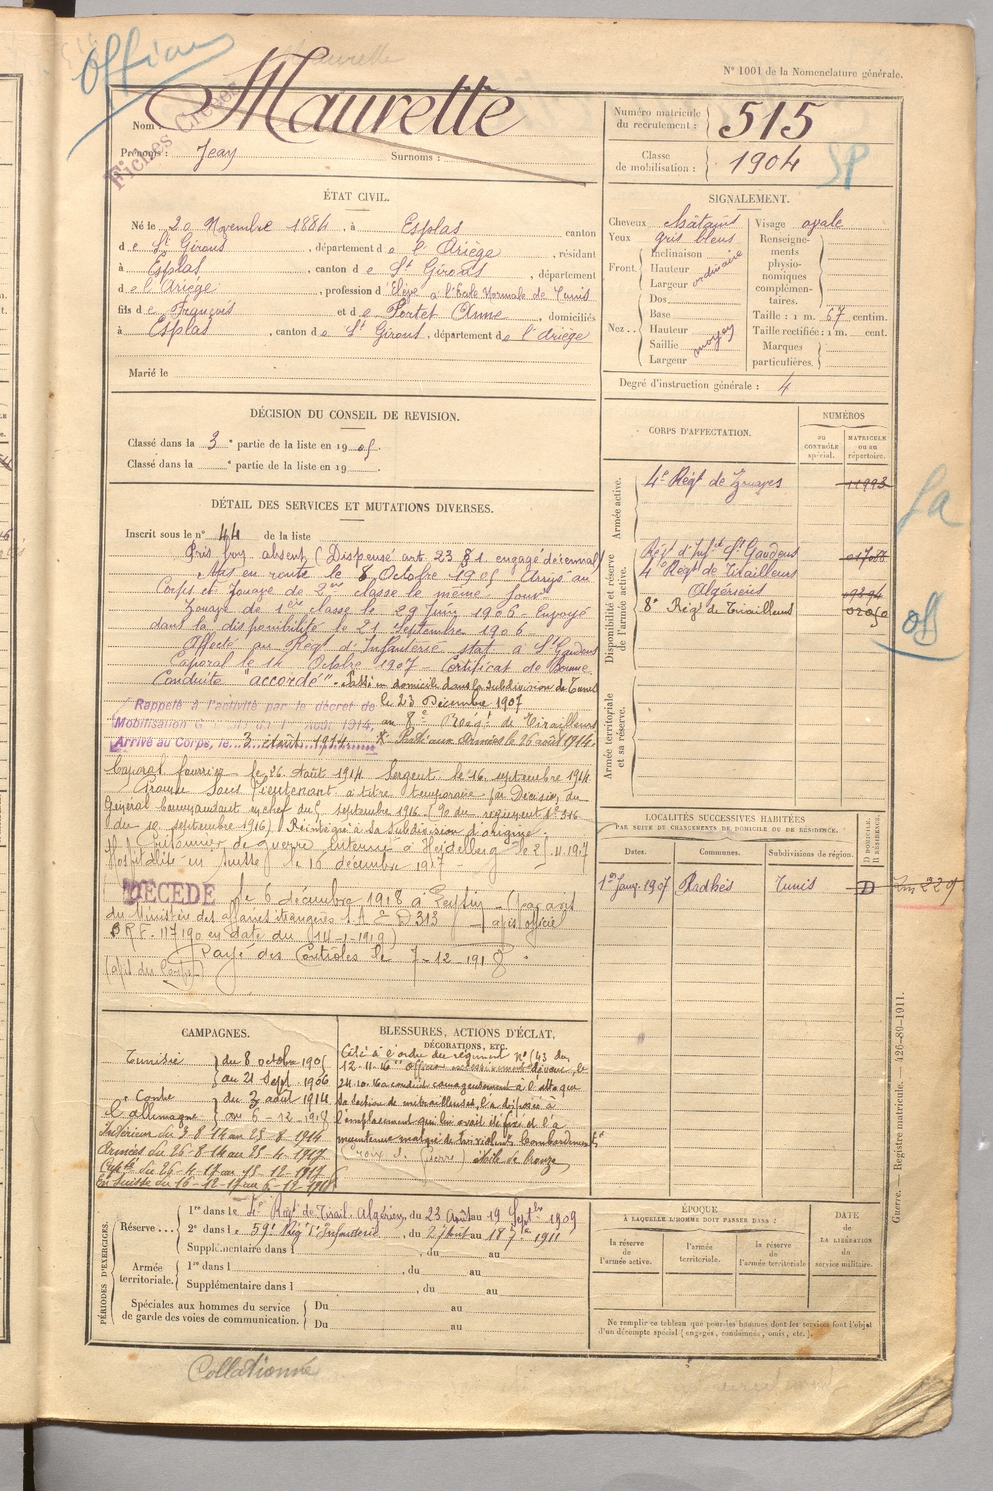 Officier
Maurette
N° 1001 de la Nomenclature générale.
Fiches Créées
Nom : Maurette
Prénoms : Jean Surnoms :
Numéro matricule du recrutement : 515
Classe de mobilisation : 1904
SP
ÉTAT CIVIL.
Né le 20 Novembre 1884, à Esplas, canton
de St Girons, département de l'Ariège, résidant
à Esplas, canton de St Girons, département
de l'Ariège, profession d'Elève à l'Ecole Normale de Tunis
fils de François et de Portet Anne, domiciliés
à Esplas, canton de St Girons, département de l'Ariège
Marié le
SIGNALEMENT.
Cheveux châtains Visage ovale
Yeux gris bleus
Front. Inclinaison
Hauteur ordinaire
Largeur
Nez.. Dos
Base
Hauteur
Saillie moyen
Largeur
Renseignements physionomiques complémentaires.
Taille : 1 m. 67 centim.
Taille rectifiée : 1 m. cent.
Marques particulières.
Degré d'instruction générale : 4
DÉCISION DU CONSEIL DE REVISION.
Classé dans la 3e partie de la liste en 1905.
Classé dans la e partie de la liste en 19
CORPS D'AFFECTATION.
NUMÉROS
au CONTRÔLE spécial.
MATRICULE ou au répertoire.
Armée active.
4e Régt de Zouaves 11993
Disponibilité et réserve de l'armée active.
Régt d'Inft St Gaudens
4e Régt de Tirailleurs
Algériens
8e Régt de Tirailleurs
Armée territoriale et sa réserve.
Sa
off
DÉTAIL DES SERVICES ET MUTATIONS DIVERSES.
Inscrit sous le n° 44 de la liste
Pris bon absent (Dispensé art. 23 § 1 engagé décennal)
Mis en route le 8 Octobre 1905 Arrivé au
Corps et Zouave de 2me classe le même jour
Zouave de 1ère classe le 29 Juin 1906 – Envoyé
dans la disponibilité le 21 Septembre 1906
Affecté au Régt d'Infanterie stat. à St Gaudens
Caporal le 14 Octobre 1907 – Certificat de Bonne
Conduite "accordé" – Passé en domicile dans la subdivision de Tunis
le 23 Décembre 1907
Rappelé à l'activité par le décret de
Mobilisation août 1914, au 8e Régt de Tirailleurs
Arrivé au Corps, le 3 août 1914 Parti aux Armées le 26 août 1914.
Caporal fourrier le 26 Août 1914 Sergent le 16 septembre 1914
Promu Sous Lieutenant à titre temporaire par Décision du
Général Commandant en chef du septembre 1916
du 10 septembre 1916) Réintégré à sa subdivision d'origine.
Prisonnier de guerre interné à Heidelberg
Hospitalisé en Suisse le 16 décembre 1917
DÉCÉDÉ le 6 décembre 1918 à Leysin – (par avis
du Ministère des affaires étrangères
B.R.F. 117190 en date du (14-1-1919)
Rayé des Contrôles le 7-12-1918.
(avis du Corps)
LOCALITÉS SUCCESSIVES HABITÉES
PAR SUITE DE CHANGEMENTS DE DOMICILE OU DE RÉSIDENCE.
Dates. Communes. Subdivisions de région. D DOMICILE. R RÉSIDENCE.
1er Janv. 1907 Radhès Tunis D
CAMPAGNES.
Tunisie du 8 octobre 1905
au 21 Sept 1906
Contre l'allemagne du 3 août 1914
au 6-12-1918
Intérieur du 3-8-14 au 25-8-1914
Armées du 26-8-14 au 25-4-1917
Captté du 26-4-17 au 15-12-1917
En Suisse du 16-12-17 au 6-12-1918
BLESSURES, ACTIONS D'ÉCLAT, DÉCORATIONS, ETC.
Cité à l'ordre du régiment n° 143 du
12-11-16 "Officier dévoué, le
24-10-16 a conduit courageusement à l'attaque
sa section de mitrailleuses, l'a disposée à
l'emplacement qui lui avait été fixé et l'a
maintenue malgré de très violents bombardements"
(Croix de Guerre) étoile de bronze
PÉRIODES D'EXERCICES.
Réserve... 1re dans le 4e Régt de Tirail. Algériens, du 23 Août au 19 Septbre 1909
2e dans le 59e Rég d'Infanterie, du 27 août au 18 1911
Supplémentaire dans l , du au
Armée territoriale. 1re dans l , du au
Supplémentaire dans l , du au
Spéciales aux hommes du service de garde des voies de communication. Du au
Du au
ÉPOQUE
À LAQUELLE L'HOMME DOIT PASSER DANS :
la réserve de l'armée active.
l'armée territoriale.
la réserve de l'armée territoriale
DATE de LA LIBÉRATION du service militaire.
Ne remplir ce tableau que pour les hommes dont les services font l'objet
d'un décompte spécial (engagés, condamnés, omis, etc.).
Guerre. — Registre matricule. — 426-89-1911.
Collationné